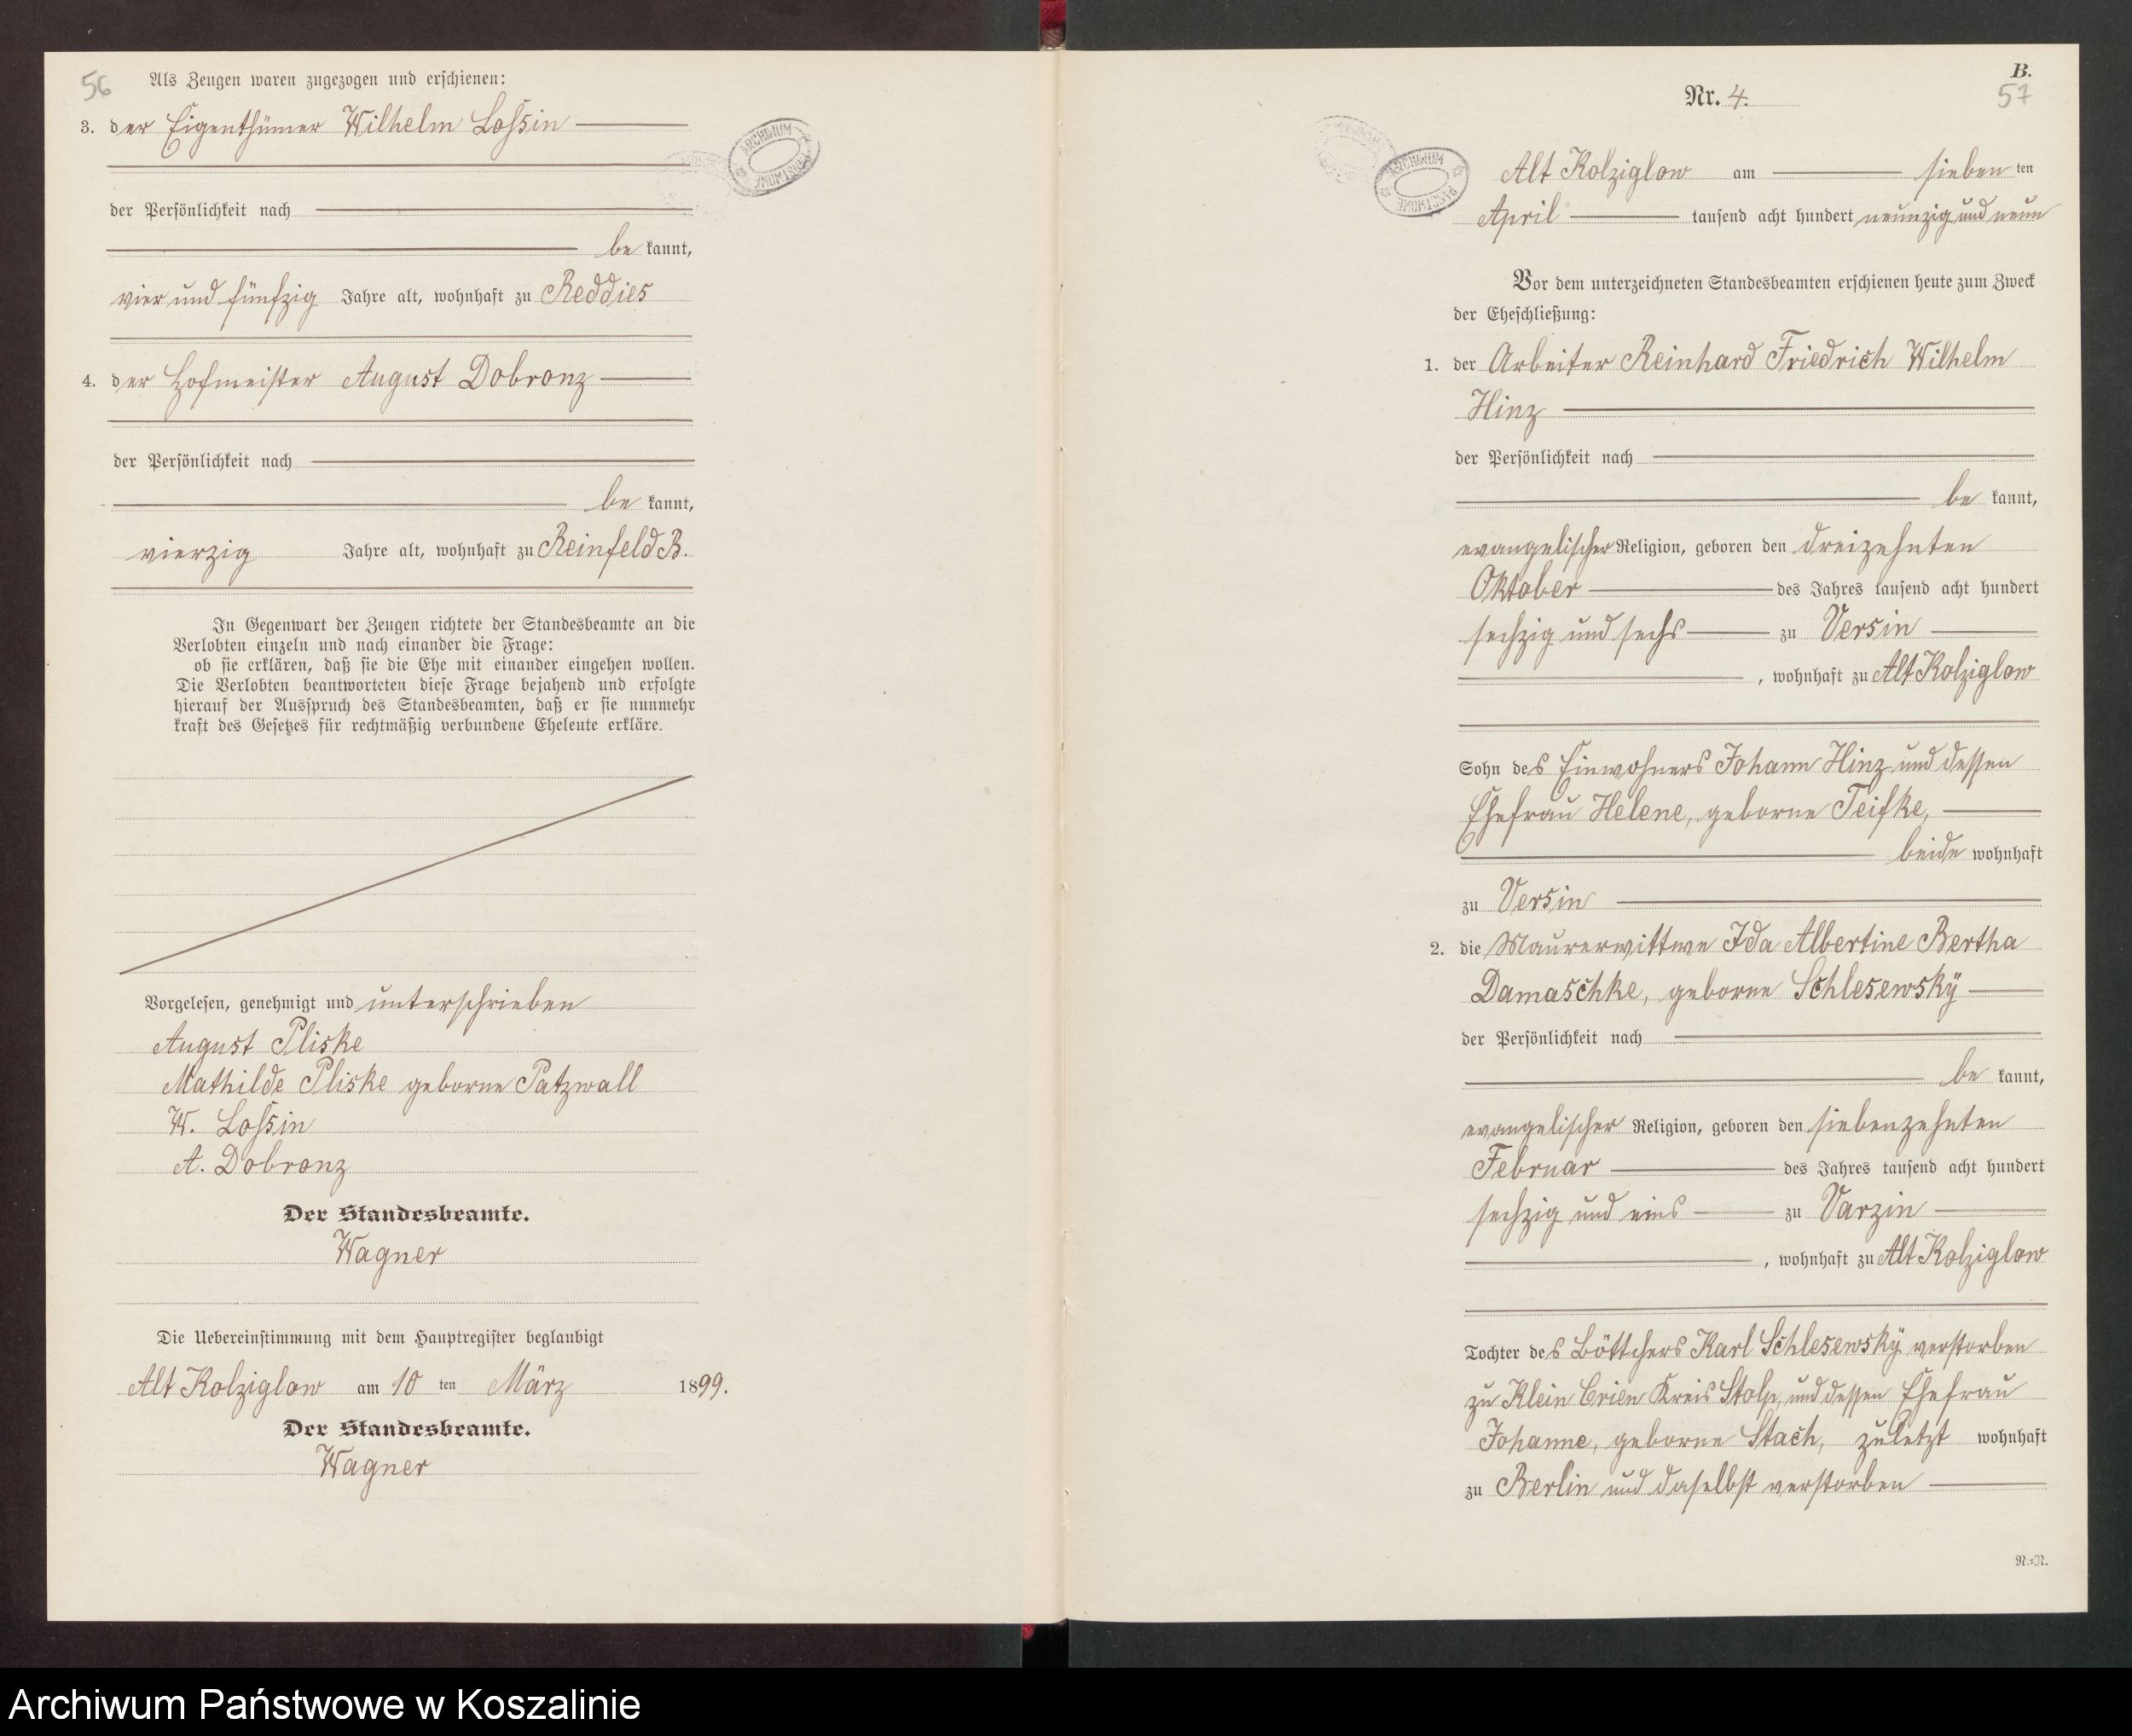 56
Als Zeugen waren zugezogen und erschienen:
3. der Eigenthümer Wilhelm Lossin
der Persönlichkeit nach
be kannt,
vier und fünfzig Jahre alt, wohnhaft zu Reddies
4. der Hofmeister August Dobronz
der Persönlichkeit nach
be kannt,
vierzig Jahre alt, wohnhaft zu Reinfeld B.
In Gegenwart der Zeugen richtete der Standesbeamte an die
Verlobten einzeln und nach einander die Frage:
ob sie erklären, daß sie die Ehe mit einander eingehen wollen.
Die Verlobten beantworteten diese Frage bejahend und erfolgte
hierauf der Ausspruch des Standesbeamten, daß er sie nunmehr
kraft des Gesetzes für rechtmäßig verbundene Eheleute erkläre.
Vorgelesen, genehmigt und unterschrieben
August Pliske
Mathilde Pliske geborne Patzwall
W. Lossin
A. Dobronz
Der Standesbeamte.
Wagner
Die Uebereinstimmung mit dem Hauptregister beglaubigt
Alt Kolziglow am 10 ten März 1899.
Der Standesbeamte.
Wagner
ARCHIWUM PAŃSTWOWE
B.
Nr. 4.
57
ARCHIWUM PAŃSTWOWE
Alt Kolziglow am sieben ten
April tausend acht hundert neunzig und neun
Vor dem unterzeichneten Standesbeamten erschienen heute zum Zweck
der Eheschließung:
1. der Arbeiter Reinhard Friedrich Wilhelm
Hinz
der Persönlichkeit nach
be kannt,
evangelischer Religion, geboren den dreizehnten
Oktober des Jahres tausend acht hundert
sechzig und sechs zu Versin
, wohnhaft zu Alt Kolziglow
Sohn des Einwohners Johann Hinz und dessen
Ehefrau Helene, geborne Teifke,
beide wohnhaft
zu Versin
2. die Maurerwittwe Ida Albertine Bertha
Damaschke, geborne Schlesewsky
der Persönlichkeit nach
be kannt,
evangelischer Religion, geboren den siebenzehnten
Februar des Jahres tausend acht hundert
sechzig und eins zu Varzin
, wohnhaft zu Alt Kolziglow
Tochter des Böttchers Karl Schlesewsky verstorben
zu Klein Crien Kreis Stolp, und dessen Ehefrau
Johanne, geborne Stach, zuletzt wohnhaft
zu Berlin und daselbst verstorben
N.=N.
Archiwum Państwowe w Koszalinie